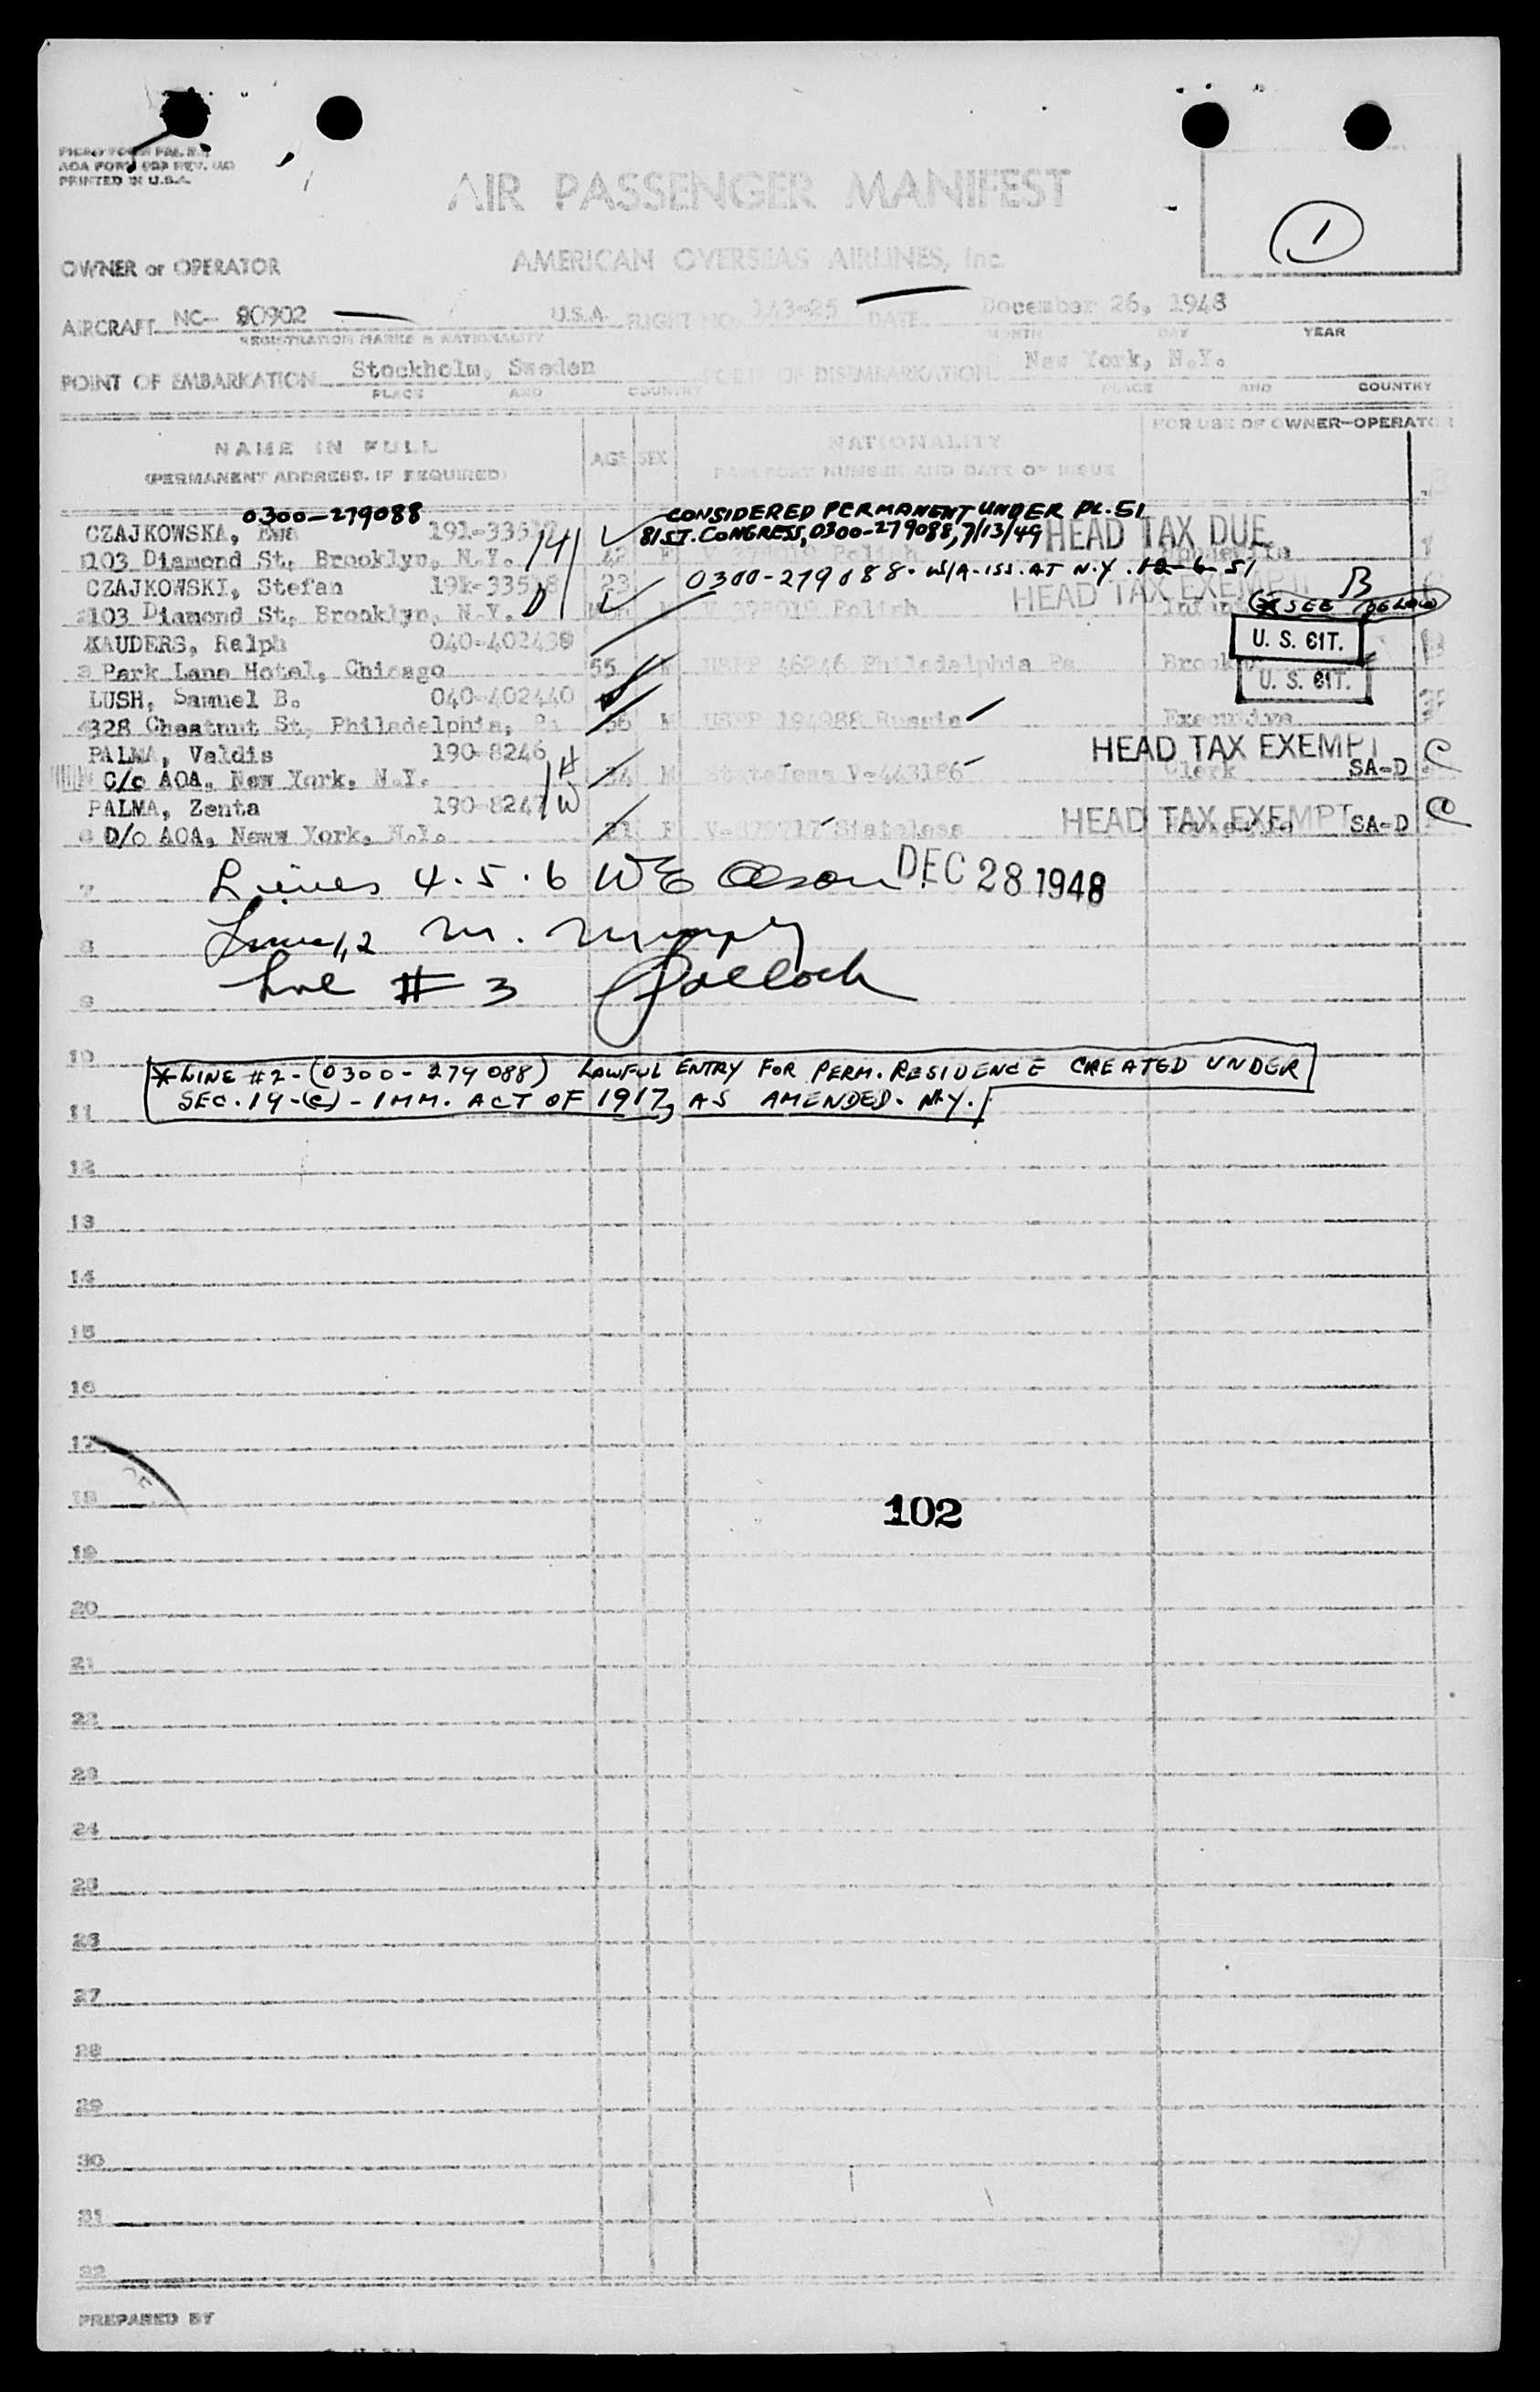 PRINTED IN U.S.A.
AIR PASSENGER MANIFEST
1
OWNER or OPERATOR AMERICAN OVERSEAS AIRLINES, Inc
AIRCRAFT NC- 90902 U.S.A. FLIGHT NO. 143-25 DATE December 26, 1948
REGISTRATION MARKS & NATIONALITY MONTH DAY YEAR
POINT OF EMBARKATION Stockholm, Sweden PORT OF DISEMBARKATION New York, N.Y.
PLACE AND COUNTRY PLACE AND COUNTRY
NAME IN FULL AGE SEX NATIONALITY FOR USE OF OWNER-OPERATOR
(PERMANENT ADDRESS, IF REQUIRED) PASSPORT NUMBER AND DATE OF ISSUE
0300-279088 CONSIDERED PERMANENT UNDER PL. 51
CZAJKOWSKA, Ewa 81ST. CONGRESS, 0300-279088, 7/13/49 HEAD TAX DUE
103 Diamond St, Brooklyn, N.Y. 42 F Polish
0300-279088. W/A-ISS. AT N.Y. 12-6-51
CZAJKOWSKI, Stefan 23 HEAD TAX EXEMPT B
103 Diamond St, Brooklyn, N.Y. M Polish Infant * SEE BELOW
KAUDERS, Ralph U. S. CIT.
Park Lane Hotel, Chicago 55 M USPP 46246 Philadelphia Pa
LUSH, Samuel B. 040-402440 U. S. CIT.
328 Chestnut St, Philadelphia, Pa 56 M USPP 194988 Russia Executive
PALMA, Valdis 190-8246 H HEAD TAX EXEMPT C
C/o AOA, New York, N.Y. 34 M Stateless V-443186 Clerk SA-D
PALMA, Zenta 190-8247 W HEAD TAX EXEMPT C
D/o AOA, Neww York, N.Y. 31 F Stateless SA-D
7 Lines 4.5.6 WE Olson DEC 28 1948
8 Lines 1,2 M. Murphy
9 Line # 3 Pollock
10
* LINE #2-(0300-279088) LAWFUL ENTRY FOR PERM. RESIDENCE CREATED UNDER
11 SEC. 19-(C)-IMM. ACT OF 1917, AS AMENDED. N.Y.
12
13
14
15
16
17
18
102
19
20
21
22
23
24
25
26
27
28
29
30
31
32
PREPARED BY